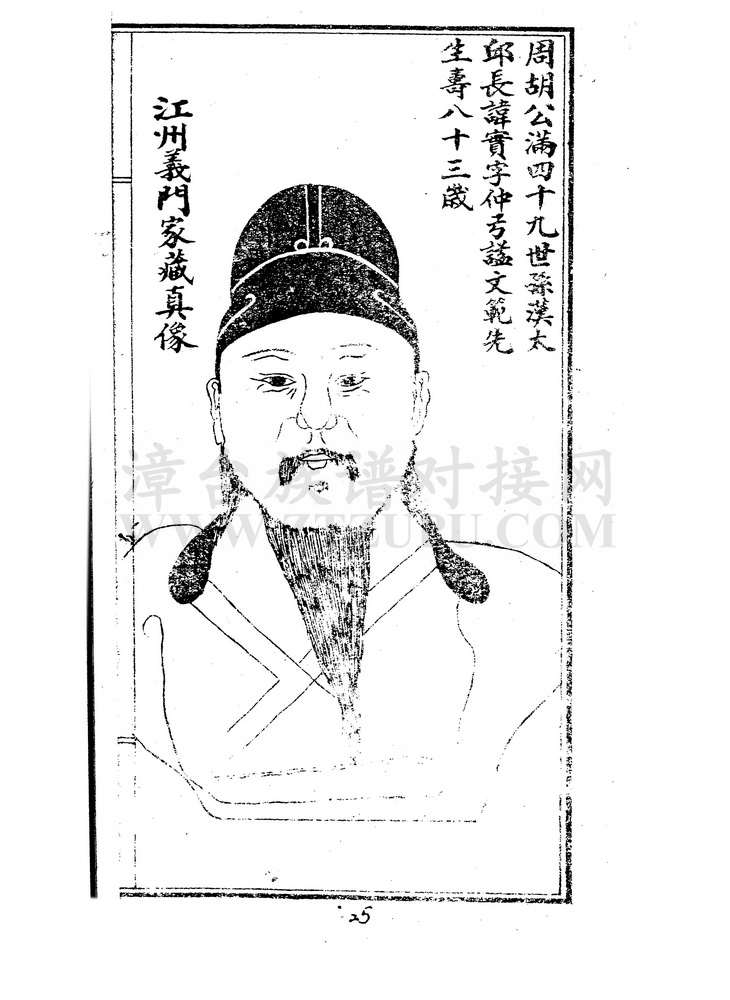 周胡公滿四十九世孫漢太
邱長諱實字仲弓諡文範先
生壽八十三歲
江州義門家藏真像
漳台族谱对接网
WWW.ZTZUPU.COM
25